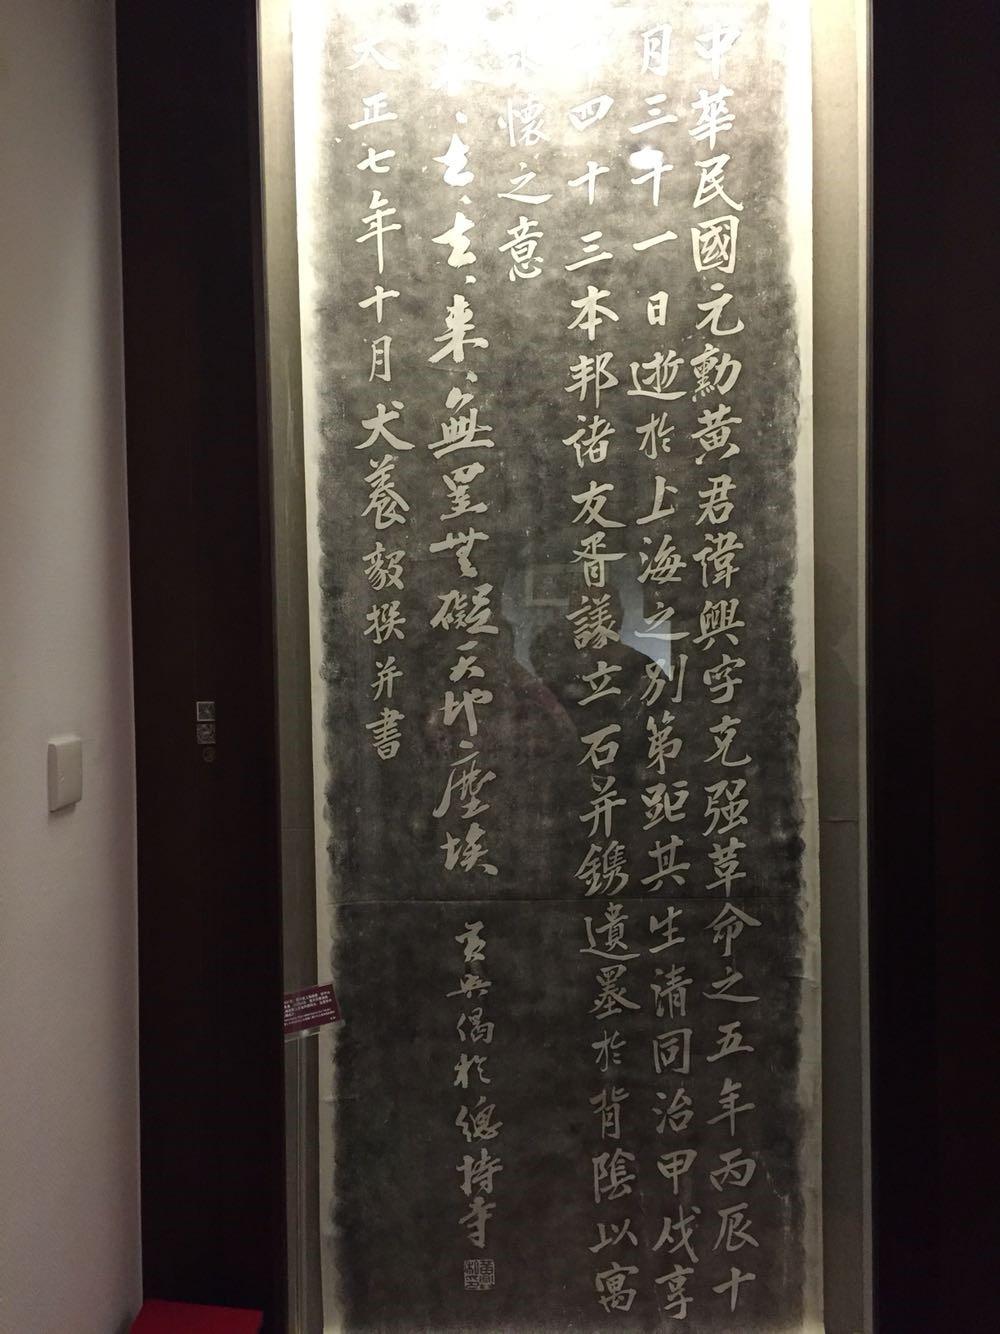 中華民國元勳黃君諱興字克强革命之五年丙辰十
月三十一日逝於上海之別第距其生清同治甲戌享
年四十三本邦諸友胥議立石并鐫遺墨於背陰以寓
永懷之意
來、去、去、来、無罣無礙天地塵埃
黄興偈於總持寺
大正七年十月犬養毅撰并書